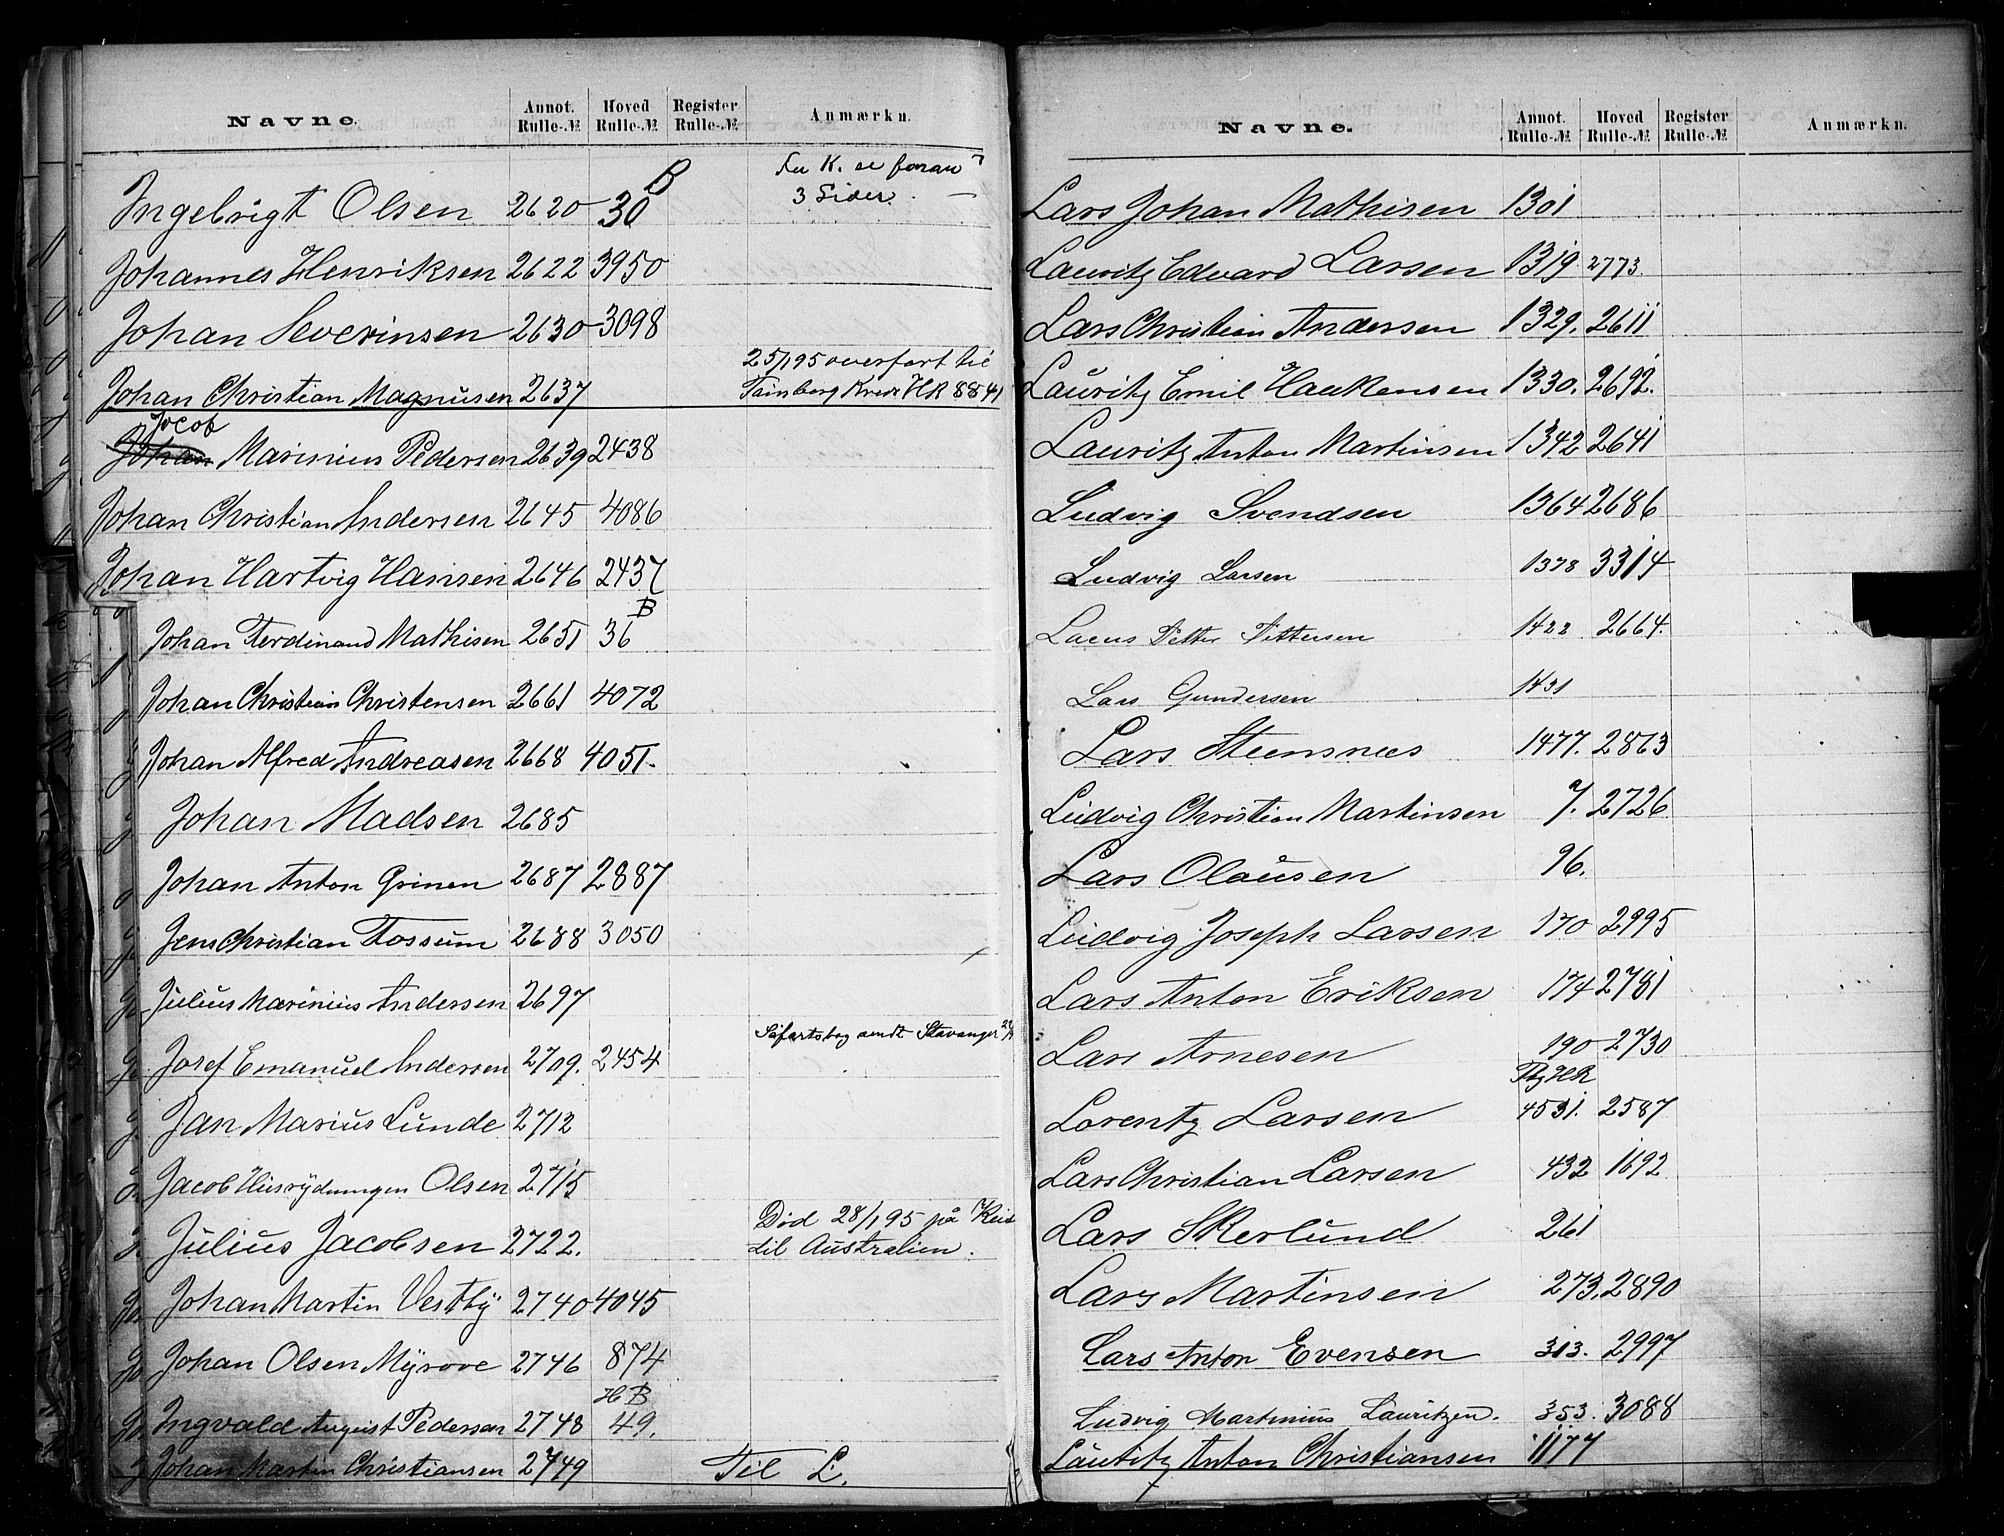 Navne. Annot. Rulle-№ Hoved Rulle-№ Register Rulle-№ Anmærkn.
K. se foran
3 Sider.
B
Ingebrigt Olsen 2620 30
Johannes Henriksen 2622 3950
Johan Severinsen 2630 3098
25/1 95 overfort til
Johan Christian Magnusen 2637 Tønsberg Kreds HR 8841
Jocob
Johan Marinius Pedersen 2639 2438
Johan Christian Andersen 2645 4086
Johan Hartvig Hansen 2646 2437
B
Johan Ferdinand Mathisen 2651 36
Johan Christian Christensen 2661 4072
Johan Alfred Andreasen 2668 4051.
Johan Madsen 2685
Johan Anton Grinen 2687 2887
Jens Christian Fossum 2688 3050
Julius Marinius Andersen 2697
Søfartsbog sendt Stavanger
Josef Emanuel Andersen 2709. 2454
Jan Marius Lunde 2712
Jacob Olsen 2715
Død 28/1 95 på Reis
Julius Jacobsen 2722. til Australien.
Johan Martin Vestby 2740 4045
Johan Olsen Myrove 2746 874
H B
Ingvald August Pedersen 2748 49.
Johan Martin Christiansen 2749 Til L.
Navne. Annot. Rulle-№ Hoved Rulle-№ Register Rulle-№ Anmærkn.
Lars Johan Mathisen 1301
Lauritz Edvard Larsen 1319 2773.
Lars Christian Andersen 1329. 2611
Lauritz Emil Haakensen 1330. 2692.
Lauritz Anton Martinsen 1342 2641
Ludvig Svendsen 1364 2686
Ludvig Larsen 1378 3314
Petter Pettersen 1422 2664.
Lars Gundersen 1431
Lars Steensnæs 1477. 2863
Ludvig Christian Martinsen 7. 2726
Lars Olausen 96.
Ludvig Joseph Larsen 170 2995
Lars Anton Eriksen 174 2781
Lars Arnesen 190 2730
Tbg HR
Lorentz Larsen 4531. 2587
Lars Christian Larsen 432 1692
Lars Skerlund 261
Lars Martinsen 273. 2890
Lars Anton Evensen 313. 2997
Ludvig Martinius Lauritzen. 353. 3088
Lauritz Anton Christiansen 1177